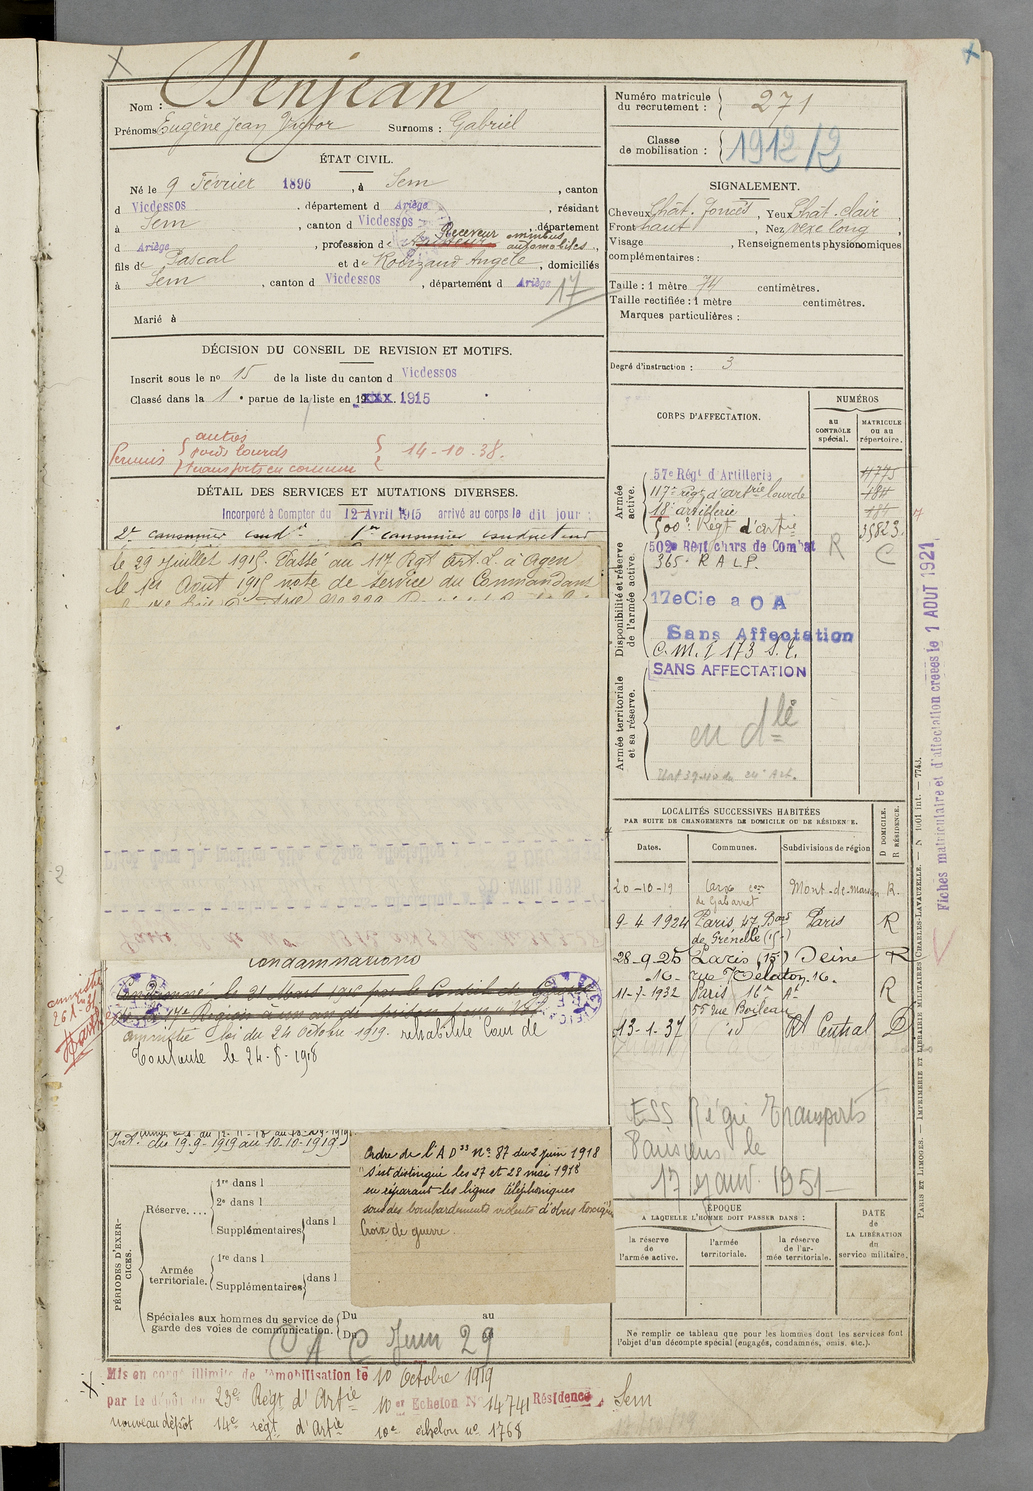 Nom : Denjean
Prénoms Eugène Jean Victor Surnoms : Gabriel
ÉTAT CIVIL.
Né le 9 Février 1896, à Sem, canton
d Vicdessos. département d Ariège, résidant
à Sem, canton d Vicdessos, département
d Ariège, profession de Receveur omnibus automobiles,
fils de Pascal et de Angèle, domiciliés
à Sem, canton d Vicdessos, département d Ariège
17
Marié à
DÉCISION DU CONSEIL DE REVISION ET MOTIFS.
Inscrit sous le no 15 de la liste du canton d Vicdessos
Classé dans la 1e partie de la liste en 19XXX. 1915
Permis { autres
poids lourds
transports en commun } 14-10-38.
DÉTAIL DES SERVICES ET MUTATIONS DIVERSES.
Incorporé à Compter du 12 Avril 1915 arrivé au corps le dit jour ;
2e canonnier condr 1er canonnier conducteur
le 29 Juillet 1915. Passé au 117 Rgt Art. L. à Agen
le 1er Août 1915 note de service du Commandant
Condamnations
Condamné le 21 Mars 1918 par le Conseil de Guerre
17e Région à un an de prison pour
amnistié loi du 24 Octobre 1919. rehabilité Cour de
Toulouse le 24-8-1918
Int. du 19.9-1919 au 10-10-1919
Ordre de l'A D 33 No 87 du 2 juin 1918
"S'est distingué les 27 et 28 mai 1918
en réparant les lignes téléphoniques
sous des bombardements violents d'obus toxiques
Croix de guerre.
PÉRIODES D'EXERCICES.
Réserve....
1re dans l
2e dans l
Supplémentaires dans l
Armée territoriale.
1re dans l
Supplémentaires dans l
Spéciales aux hommes du service de garde des voies de communication.
Du au
Du
C A C Juin 29
Mis en congé illimité de démobilisation le 10 Octobre 1919
par le dépôt du 23e Régt d'Artie 10e Echelon No 14741 Résidence, Sem
nouveau dépôt 14e régt d'Artie 10e échelon no 1768
Numéro matricule du recrutement : 271
Classe de mobilisation : 1912/2
SIGNALEMENT.
Cheveux Chât. foncés, Yeux Chât. clair,
Front haut, Nez vexe long,
Visage, Renseignements physionomiques
complémentaires :
Taille : 1 mètre 74 centimètres.
Taille rectifiée : 1 mètre centimètres.
Marques particulières :
Degré d'instruction : 3
CORPS D'AFFECTATION.
NUMÉROS
AU CONTRÔLE spécial.
MATRICULE OU AU répertoire.
Armée active.
57e Régt d'Artillerie
117e régt d'artrie lourde
18e artillerie
500e Régt d'artie 35823
Disponibilité et réserve de l'armée active.
502e Régt chars de Combat R C
365. R A L P.
17e Cie a O A
Sans Affectation
C. M. I 173 S. E.
Armée territoriale et sa réserve.
SANS AFFECTATION
en dlé
Fiches matriculaire et d'affectation créées le 1 AOUT 1921
LOCALITÉS SUCCESSIVES HABITÉES
PAR SUITE DE CHANGEMENTS DE DOMICILE OU DE RÉSIDENCE.
Dates. Communes. Subdivisions de région. D DOMICILE. R RÉSIDENCE.
20-10-19 de Gabarret Mont-de-marsan R.
9-4 1924 Paris, 47, Bard de Grenelle (15e) Paris R
28-9-25 Paris (15e) Seine R
rue
11-7-1932 Paris 16e Ar R
55 rue Boileau
13-1-37 id Rt Central D
ESS Régie Transports
Parisiens le
17 janv. 1951
ÉPOQUE
A LAQUELLE L'HOMME DOIT PASSER DANS :
la réserve de l'armée active.
l'armée territoriale.
la réserve de l'armée territoriale.
DATE de LA LIBÉRATION du service militaire.
Ne remplir ce tableau que pour les hommes dont les services font
l'objet d'un décompte spécial (engagés, condamnés, omis, etc.).
PARIS ET LIMOGES. — IMPRIMERIE ET LIBRAIRIE MILITAIRES CHARLES-LAVAUZELLE. — N° 1001 int. — 7743.